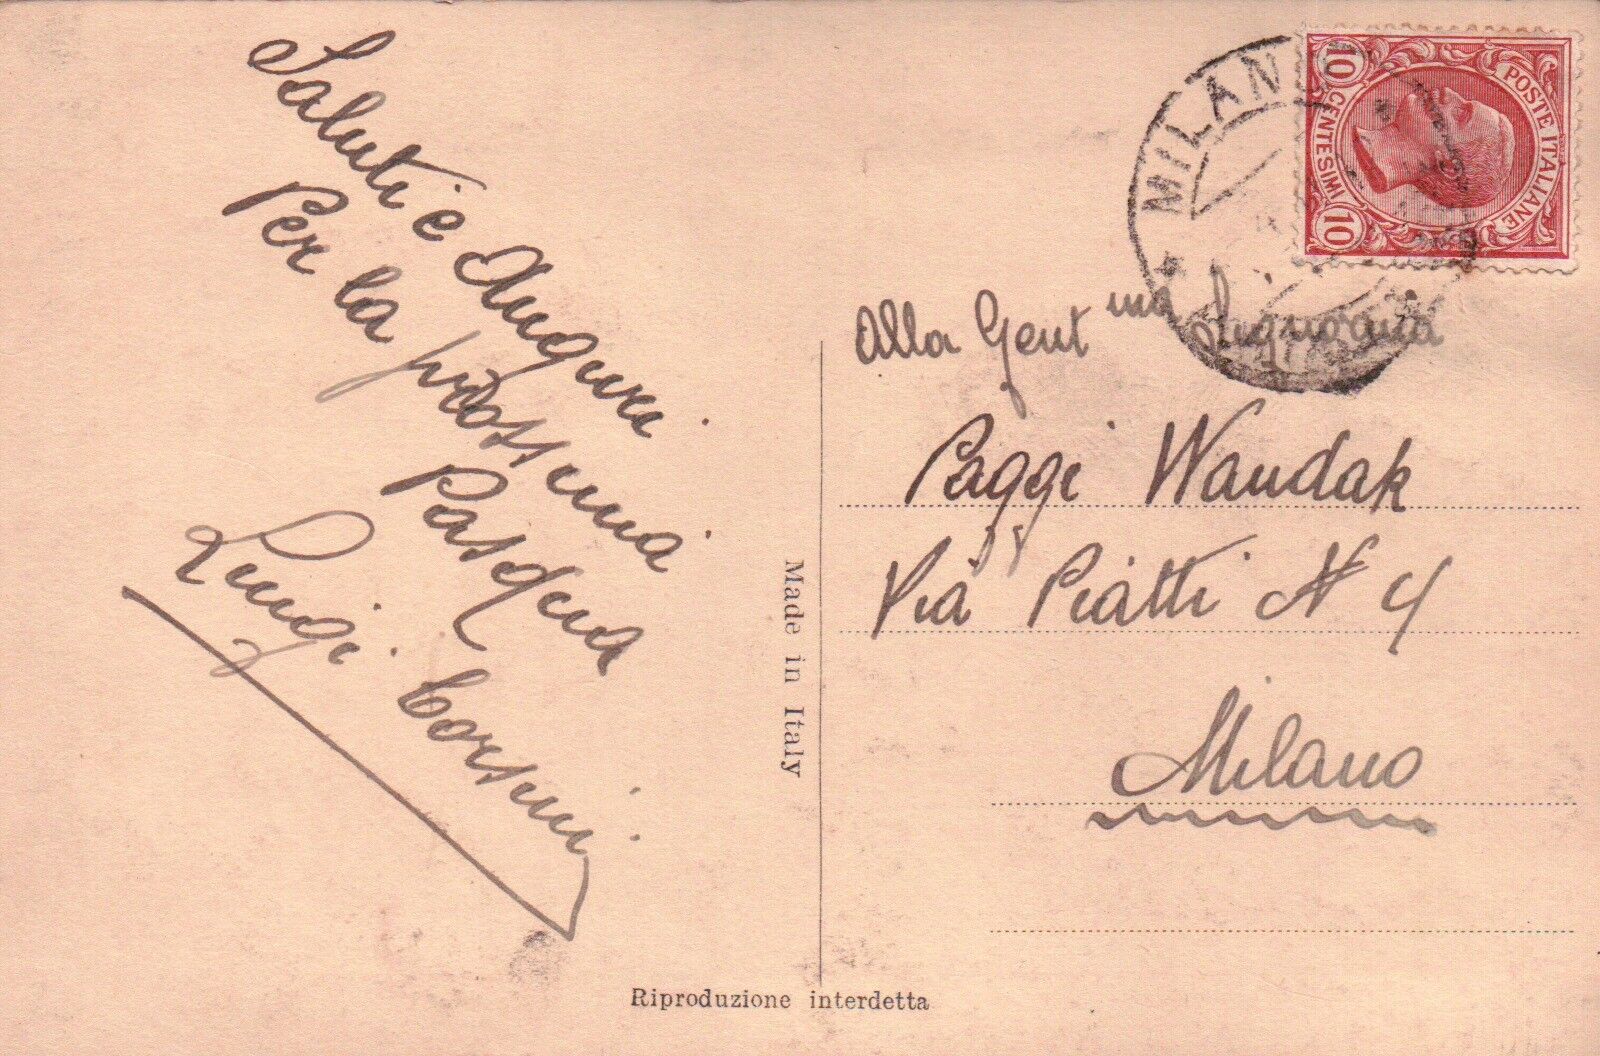 Saluti e Auguri
Per la prossima
Pasqua
Luigi Corsini
Made in Italy
Riproduzione interdetta
MILANO
POSTE ITALIANE
10 CENTESIMI 10
Alla Gent ma Signorina
Paggi Wandak
Via Piatti N 4
Milano